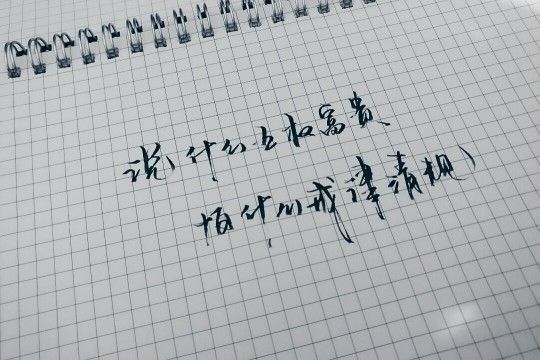 说什么王权富贵
怕什么戒律清规